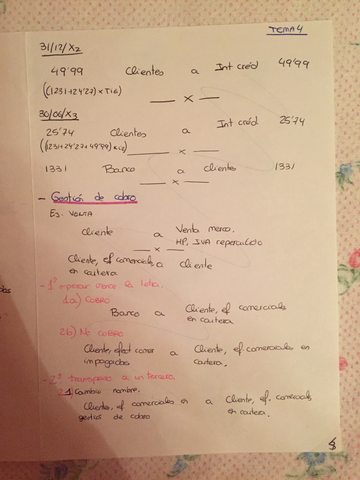 TEMA 4
31/12/X2
49'99 Clientes a Int créd 49'99
((1231+24'27)×Tie)
x
30/06/X3
25'74 Clientes a Int créd 25'74
((1231+24'27+49'99)×i2)
x
1331 Banco a Clientes 1331
x
- Gestión de cobro
Ej. VENTA
Cliente a Venta merca.
HP, IVA repercutido
x
Cliente, ef comerciales a Cliente
en cartera
-1º esperar vence la letra.
1a) COBRO
Banco a Cliente, ef comerciales
en cartera
2b) No COBRO
Cliente, efect comer a Cliente, ef comerciales en
impagados cartera.
-2º transpaso a un tercero
Cambio nombre.
Clientes, ef comerciales en a Cliente, ef comerciales
gestiós de cobro en cartera.